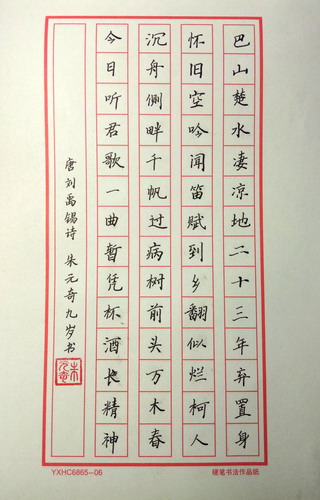 巴山楚水凄凉地二十三年弃置身
怀旧空吟闻笛赋到乡翻似烂柯人
沉舟侧畔千帆过病树前头万木春
今日听君歌一曲暂凭杯酒长精神
唐刘禹锡诗 朱元奇九岁书
YXHC6865-06
硬笔书法作品纸